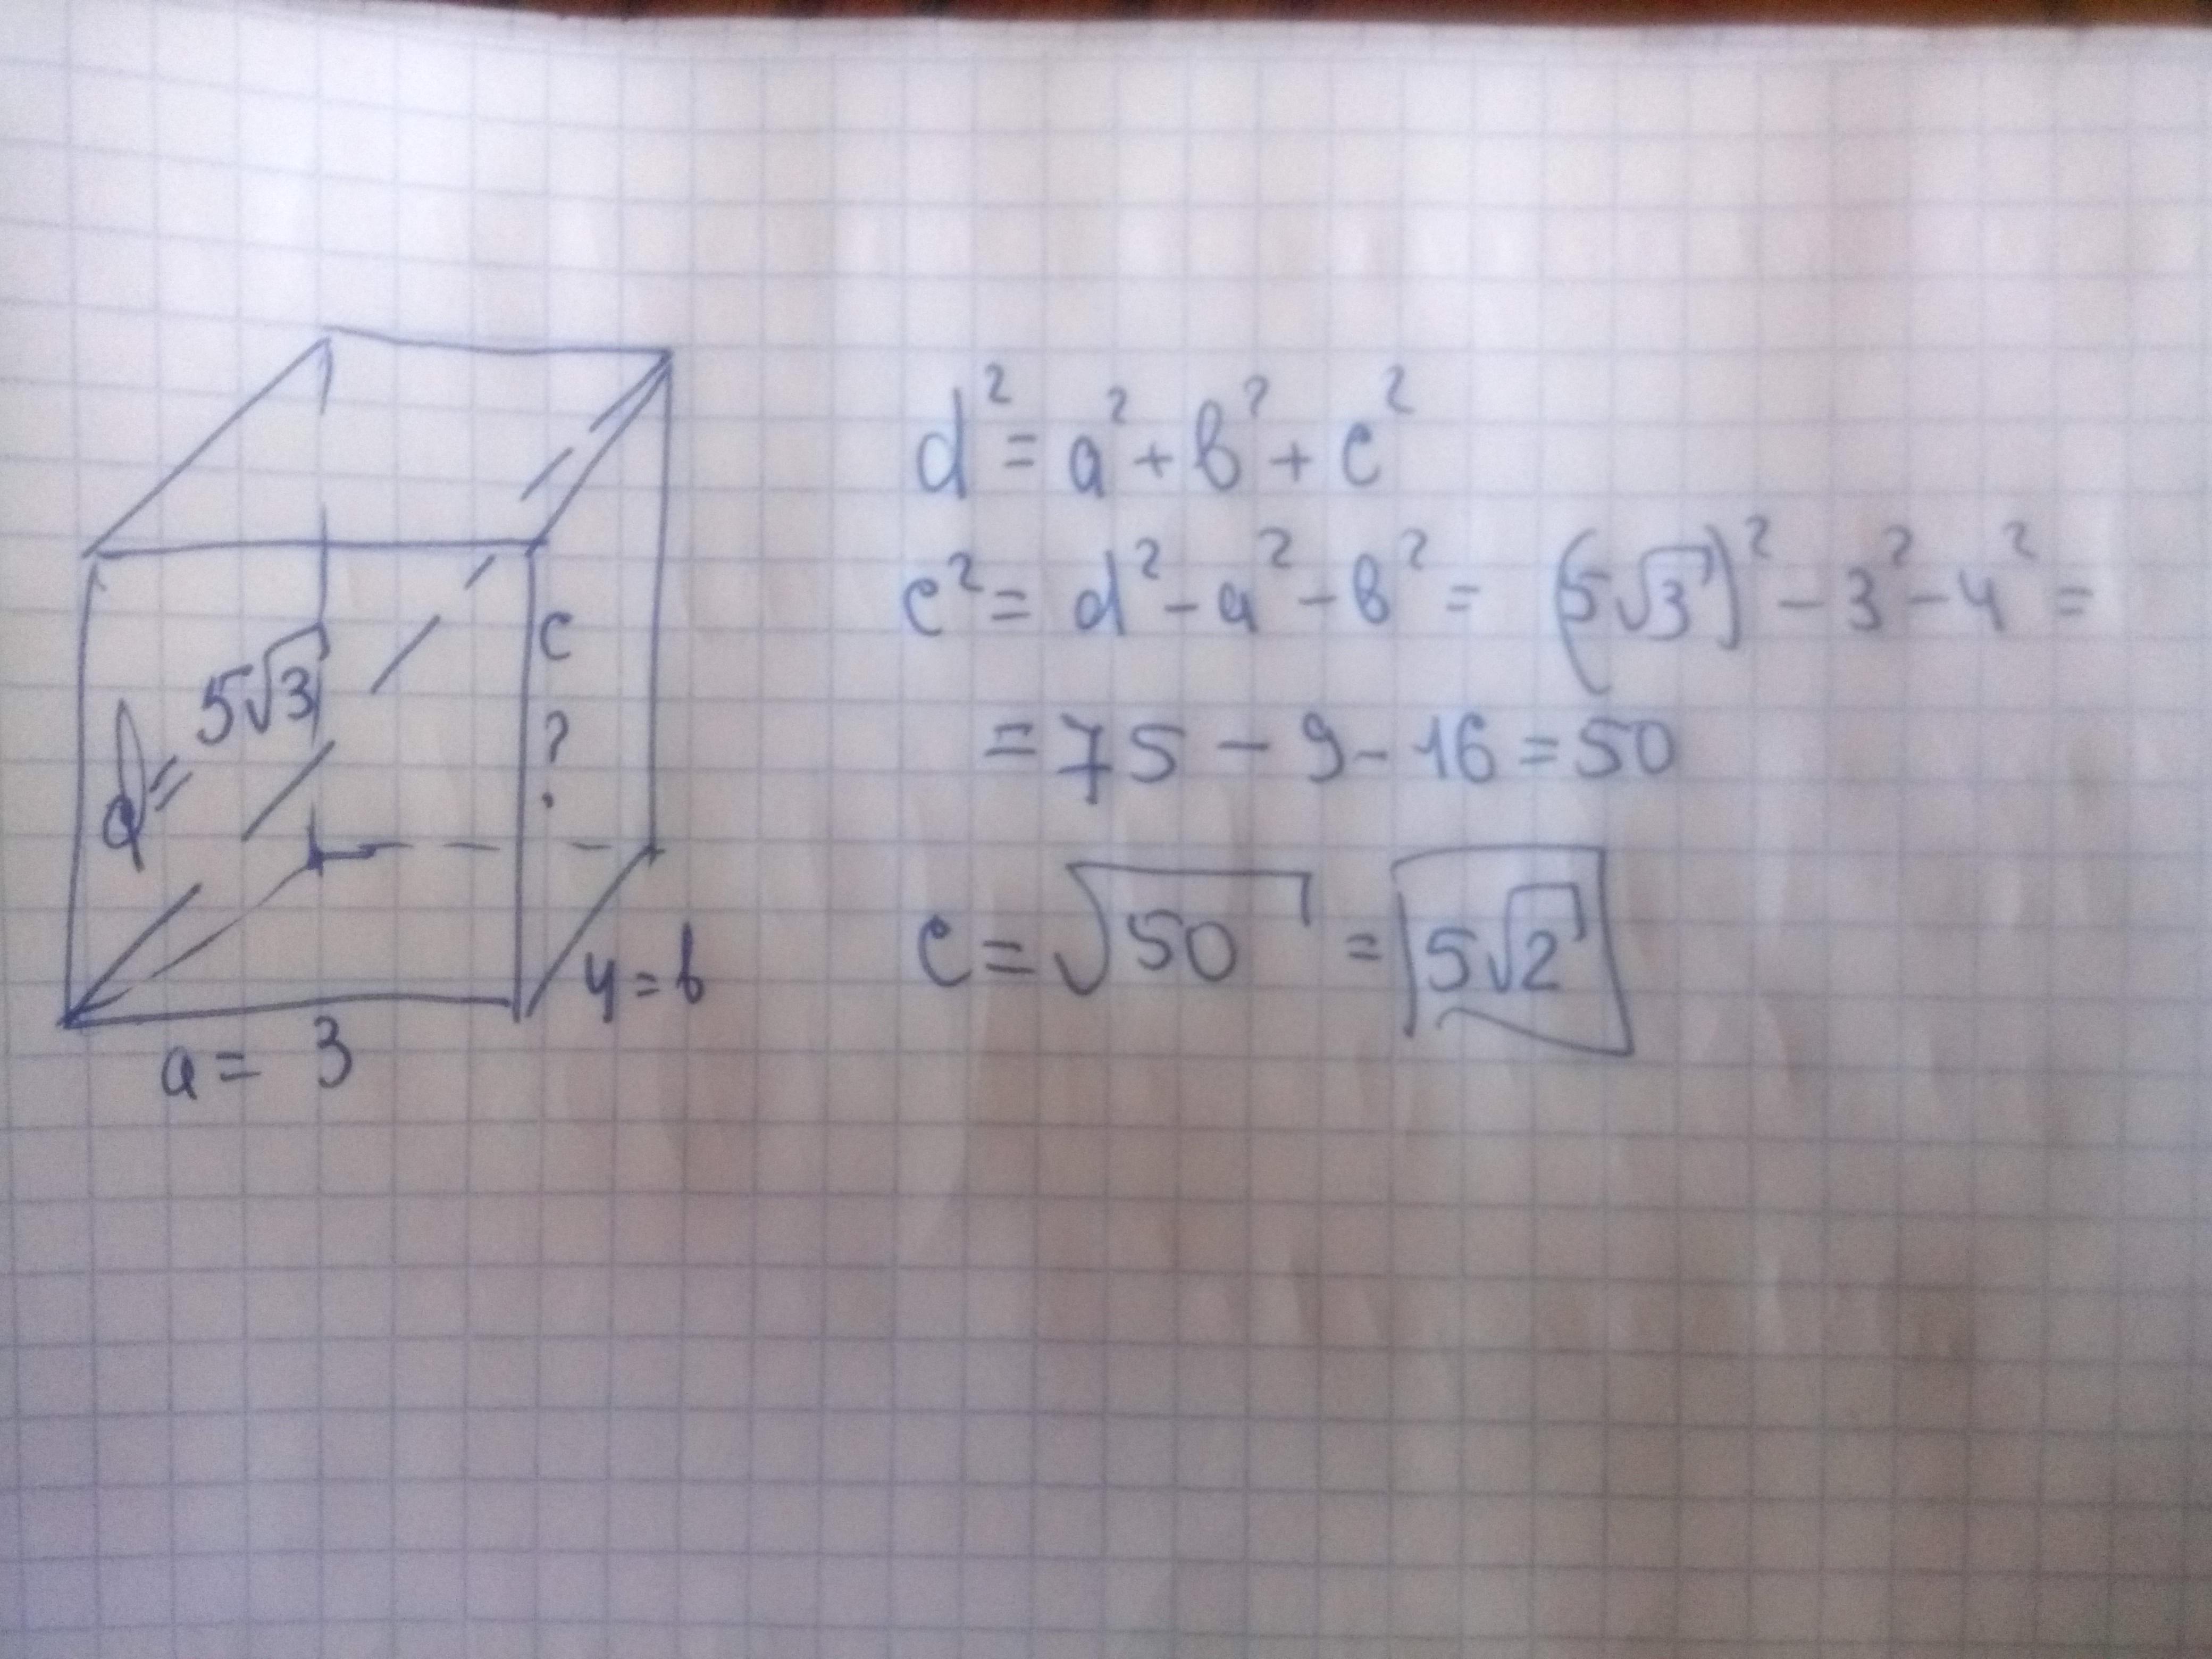 d = 5√3
c
?
4 = b
a = 3
d² = a² + b² + c²
c² = d² - a² - b² = (5√3)² - 3² - 4² =
= 75 - 9 - 16 = 50
c = √50 = 5√2